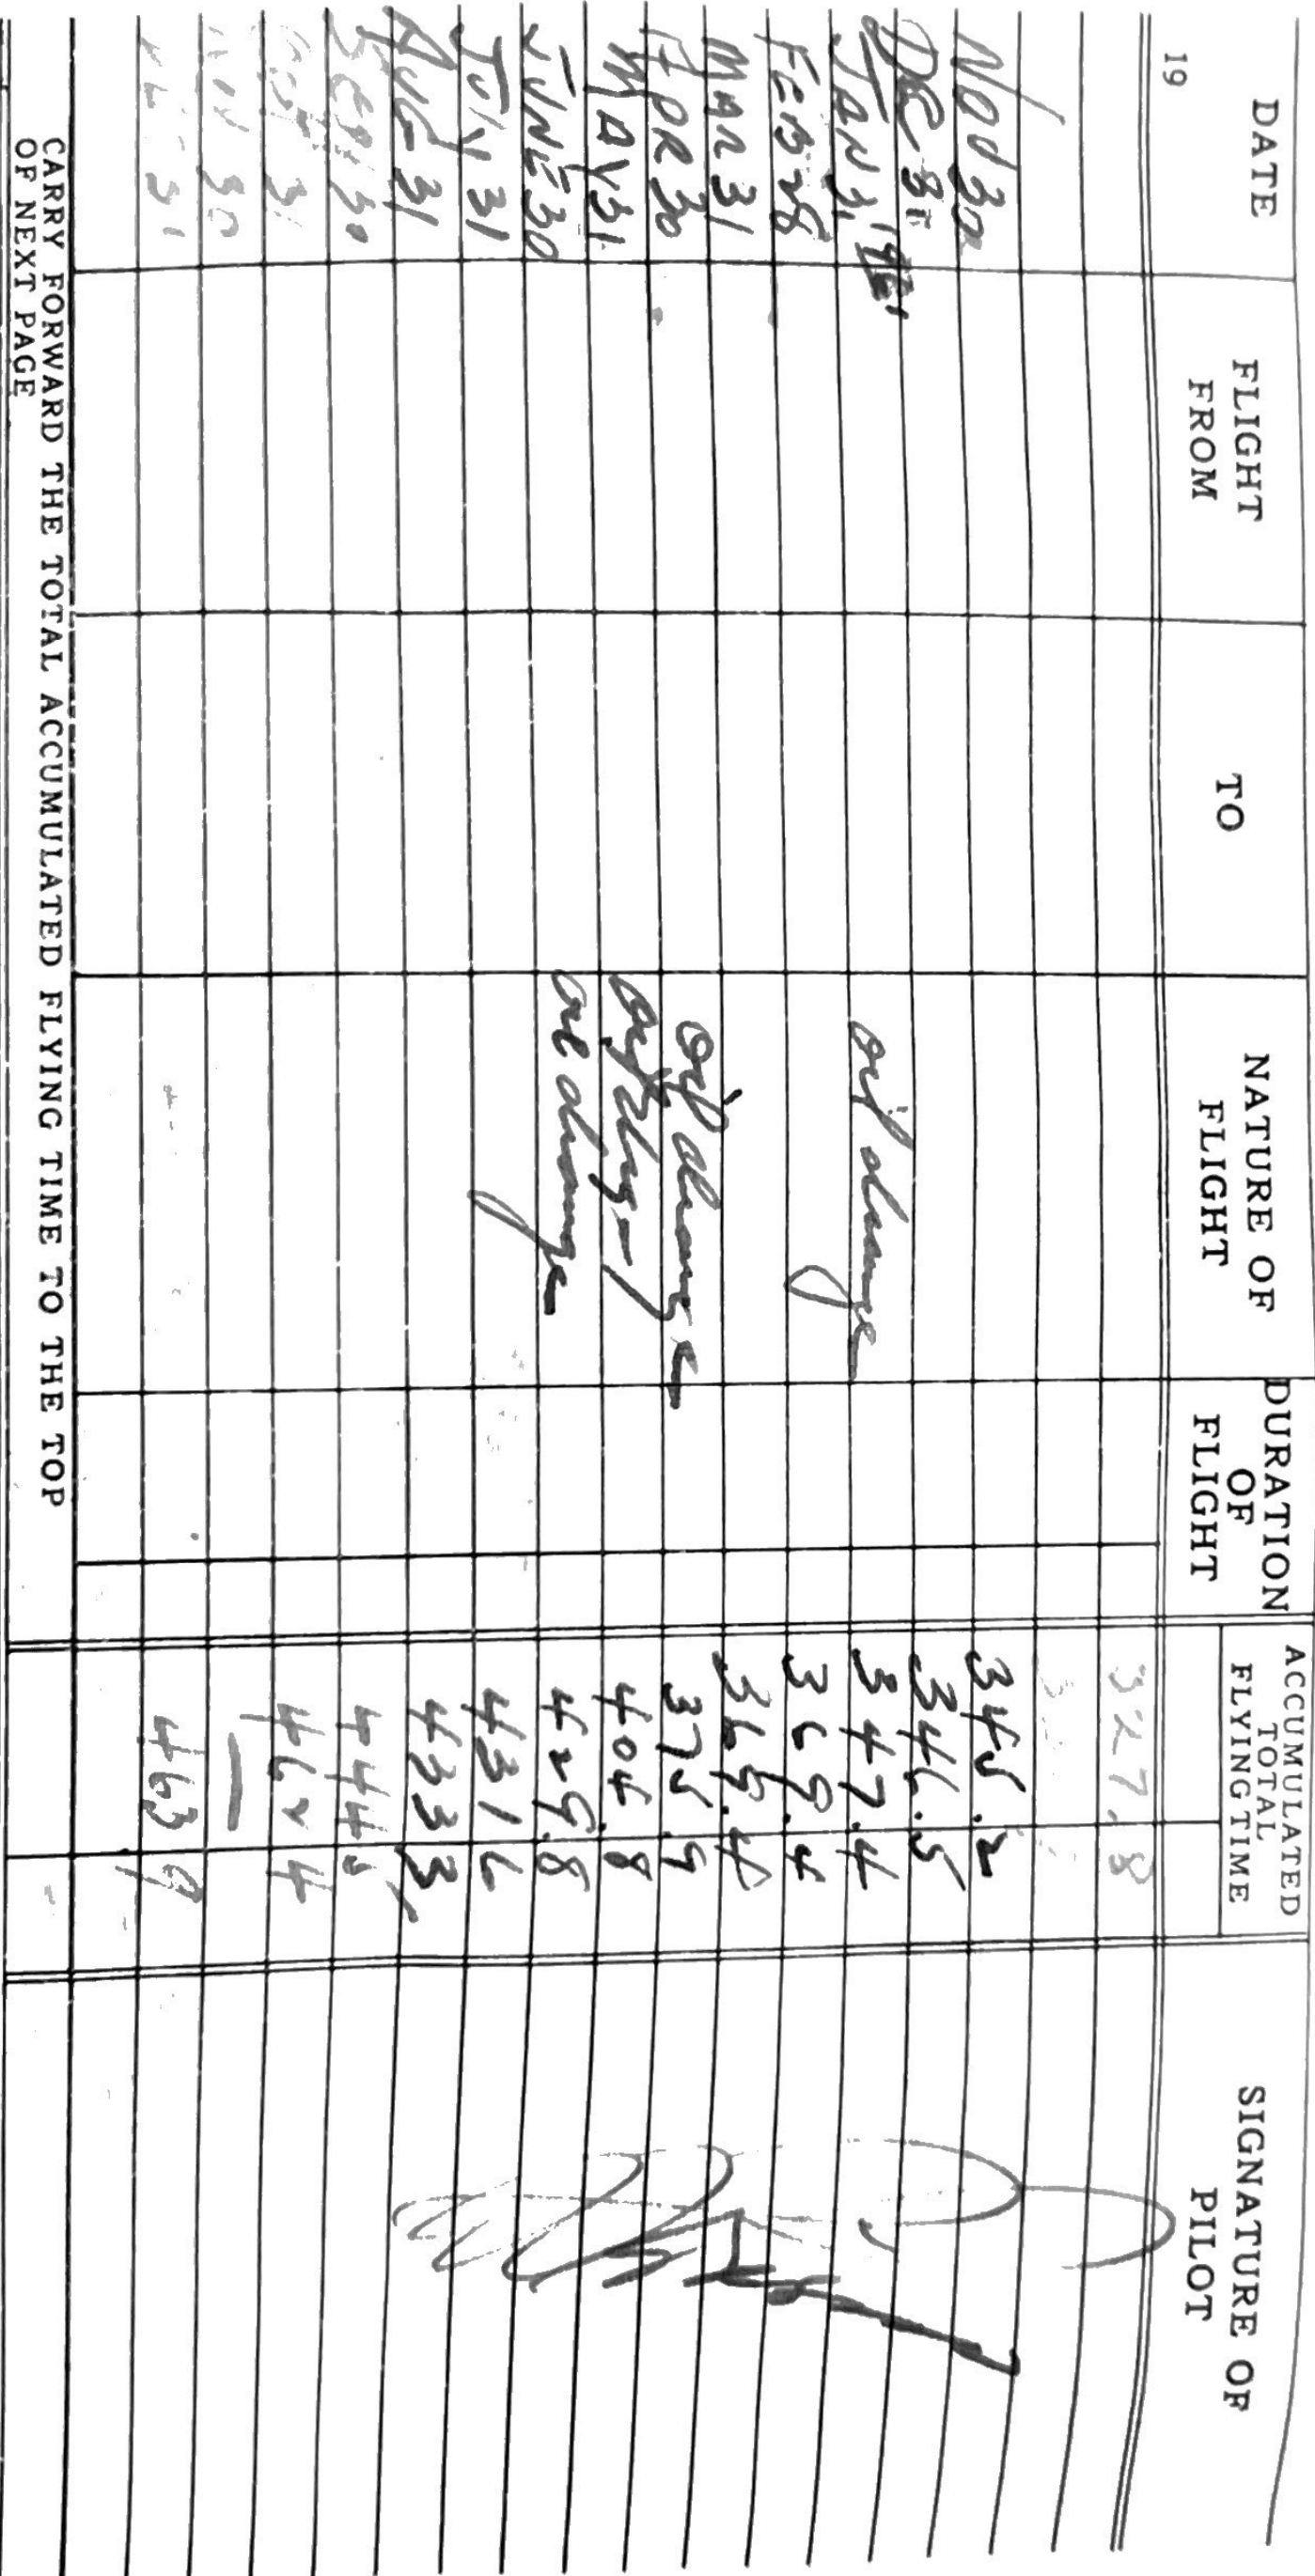 DATE FLIGHT FROM TO NATURE OF FLIGHT DURATION OF FLIGHT ACCUMULATED TOTAL FLYING TIME SIGNATURE OF PILOT
19
327.8
Nov 30 345.2
DEC 31 346.5
JAN 31 oil change 347.4
FEB 28 369.4
MAR 31 369.4
APR 30 oil change 375.9
MAY 31 404.8
JUNE 30 oil change 429.8
JULY 31 431 6
AUG 31 433 3
SEP 30 444 5
31 462 4
NOV 30 —
31 463 9
CARRY FORWARD THE TOTAL ACCUMULATED FLYING TIME TO THE TOP
OF NEXT PAGE